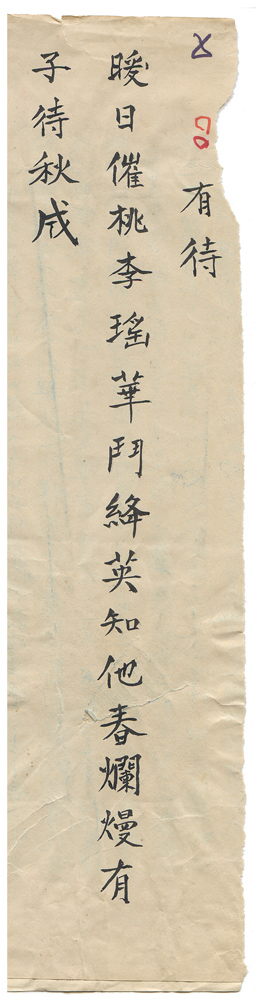 有待
暖日催桃李瑤華鬥絳英知他春爛熳有
子待秋成